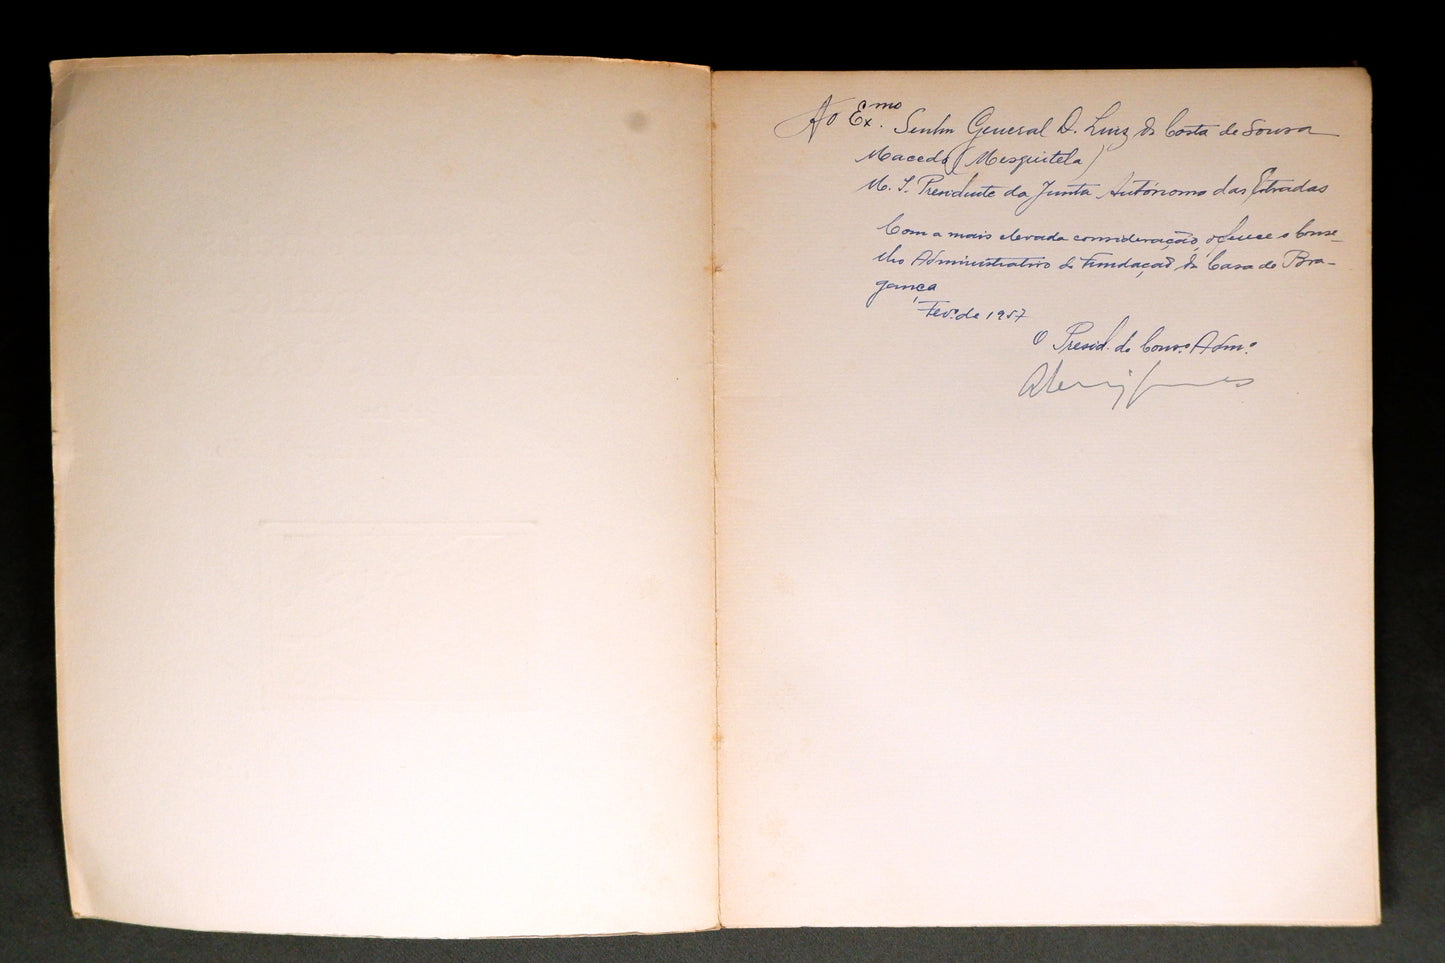 Ao Ex.mo Senhor General D. Luiz da Costa de Sousa
Macedo (Mesquitela)
M. I. Presidente da Junta Autónoma das Estradas
Com a mais elevada consideração, oferece o Conse-
lho Administrativo da Fundação da Casa de Bra-
gança
Fev.º de 1957
O Presid. do Cons.º Adm.º